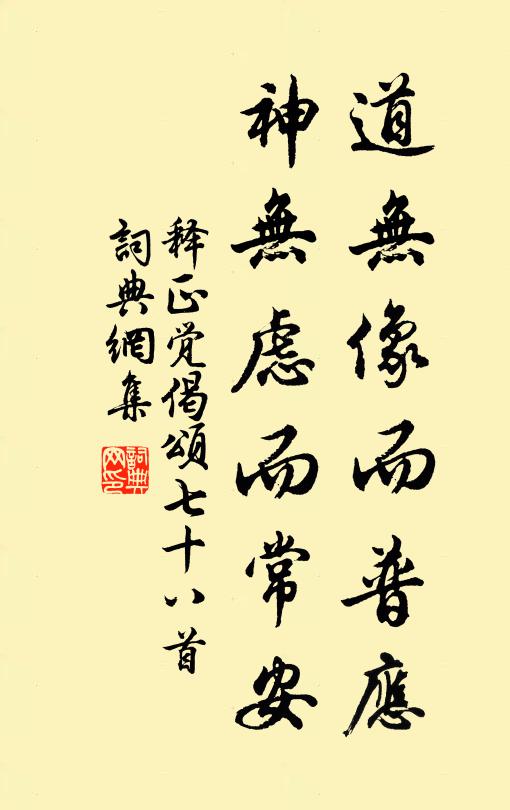 道無像而普應
神無慮而常安
释正觉偈頌七十八首
詞典網集
詞典網印